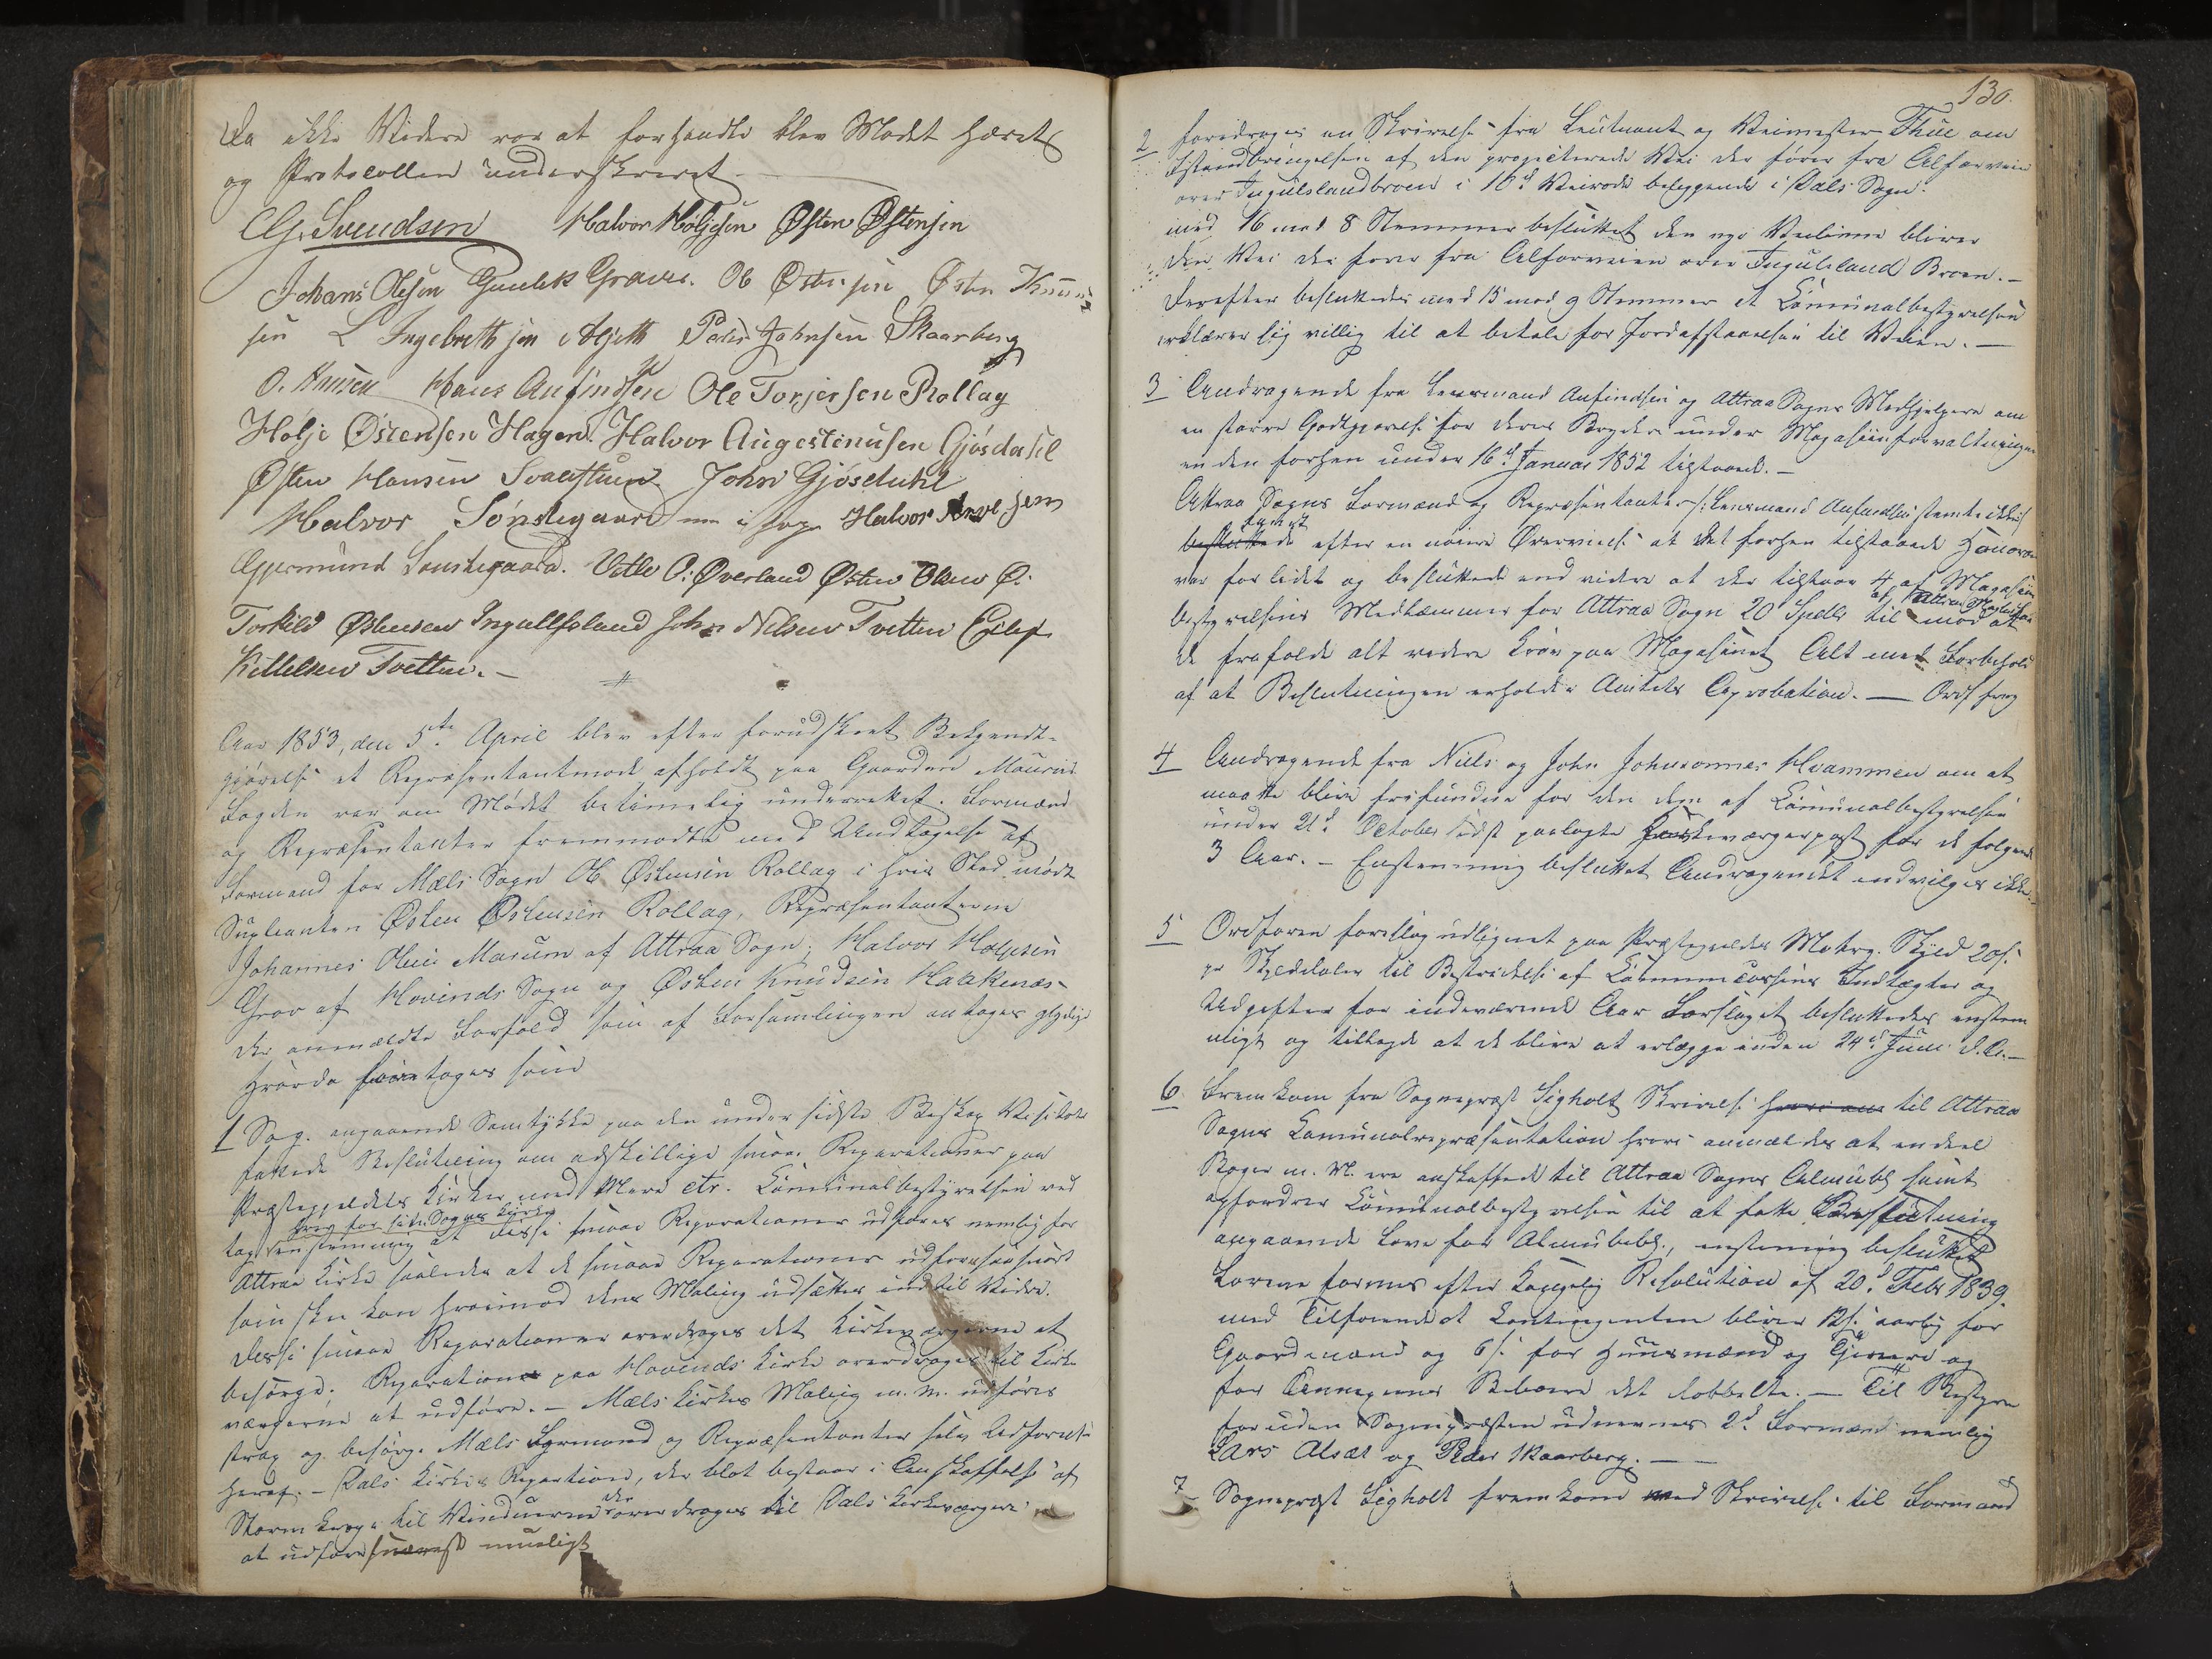 Da ikke Videre var at forhandle blev Mødet hævet
og Protocollen underskrevet.
G. Svendsen Halvor Høljesen Østen Østensen
Johans Olesen Gunlek Graver. Ob Østensen Østen Knud
sen L Ingebrethsen Peder Johnsen Skaarberg
O. Hansen Hans Anfindsen Ole Torjersen Rollag
Hølje Østensen Hagen. Halvor Augestinusen Gjøsdahl
Østen Hansen John Gjøsdahl
Halvor Søndegaard Halvor
Sønstegaard. Vetle O. Øverland Østen Olsen Ø.
Torkild Østensen Ingullfsland John Nilsen Tvetten Eilef
Kittelsen Tvetten.
Aar 1853, den 5te April blev efter forudskeet Bekjendt-
gjørelse et Repræsentantmøde afholdt paa Gaarden
Fogden var om Mødet betimelig underrettet. Formænd
og Repræsentanter fremmødte med Undtagelse af
Formand for Mæls Sogn Ob Østensen Rollag i hvis Sted mødte
Supleanten Østen Østensen Rollag, Repræsentanterne
Johannes Olsen Marum af Attraa Sogn, Halvor Høljesen
Grov af Hovinds Sogn og Østen Knudsen Haakenæs
der anmældte Forfald som af Forsamlingen antoges gyldige
hvorda foretoges som
1 Sag. angaaende Samtykke paa den under sidste Biskop Visitats
fattede Beslutning om adskillige smaae Reparationer paa
Præstegjeldets Kirker med Mere etc. Communalbestyrelsen ved
hver for sit Sogns Kirke
tog enstemmig at disse smaae Reparationer udføres nemlig for
Attraa Kirke saaledes at de smaae Reparationer udføres saasnart
som skee kan hvorimod dens Maling udsættes indtil Videre.
Disse smaae Reparationer overdroges det Kirkeværgerne at
besørge. Reparationer paa Hovinds Kirke overdroges til Kirke
værgerne at udføre. – Mæls Kirkes Maling m. m. udføres
strax og besørge Mæls Formænd og Repræsentanter selv Udførelse
heraf. – Dals Kirkes Reparation, der blot bestaar i Anskaffelse af
der
Stormkroge til Vinduerne overdroges til Dals Kirkeværgere
at udføre snarest mueligt
130.
2 foredroges en Skrivelse fra Leutnant og Veimester Thue om
Istandbringelsen af den projecterede Vei der fører fra Alfarveien
over Ingulslandbroen i 16d Veirode beliggende i Dals Sogn.
med 16 mod 8 Stemmer besluttet den nye Veilinie bliver
den Vei der fører fra Alfarveien over Ingulsland Broen. –
Derefter besluttedes med 15 mod 9 Stemmer at Communalbestyrelsen
erklærer sig villig til at betale for Jordafstaaelsen til Veien. –
3 Andragende fra Lensmand Anfindsen og Attraa Sogns Medhjelpere om
en større Godtgjørelse for deres Bryderi under Magasinforvaltningen
end den forhen under 16d Januar 1852 tilstaaede. –
Attraa Sogns Formænd og Repræsentanter /: Lensmand Anfindsen stemte ikke:/
besluttede efter en nøiere Overveielse at det forhen tilstaaede Honorar
var for lidet og besluttede end videre at der tilstaaes 4 af Magasin
bestyrelsens Medlemmer for Attraa Sogn 20 Spdlr til mod at
de frafalde alt videre Krav paa Magasinet Alt med Forbehold
af at Beslutningen erholder Amtets Approbation. —
4 Andragende fra Niels og John Johnsønner Hvammen om at
maatte blive frifundne for den dem af Communalbestyrelsen
under 21d October sidst paalagte Kirkeværgerpost for de følgende
3 Aar. – Enstemmig besluttet Andragendet indvilges ikke.
5 Ordføren foreslog udlignet paa Præstegjeldets Matrg. Skyld 20 s.
pr Skylddaler til Bestridelse af Communecassens Indtægter og
Udgifter for indeværende Aar Forslaget besluttedes enstem
migt og tillagde at de blive at erlægge inden 24d Juni d. A. –
6 Fremkom fra Sogneprest Sigholt Skrivelse til Attraa
Sogns Communalrepræsentation hvori anmældes at endeel
Bøger m. M. ere anskaffede til Attraa Sogns Almubl samt
opfordrer Communalbestyrelsen til at fatte Beslutning
angaaende Love for Almubibl., enstemmig besluttet
Lovene formes efter Kongelig Resolution af 20d Febr 1839.
med Tilføiende at Contingenten bliver 12 s. aarlig for
Gaardmænd og 6 s. for Huusmænd og Tjenere og
for Annexernes Beboere det dobbelte. – Til Bestyrere
foruden Sognepræsten udnævnes 2d Formænd nemlig
Lars Alsæt og Peder Skaarberg. ——
7 Sogneprest Sigholt fremkom med Skrivelse til Formænd